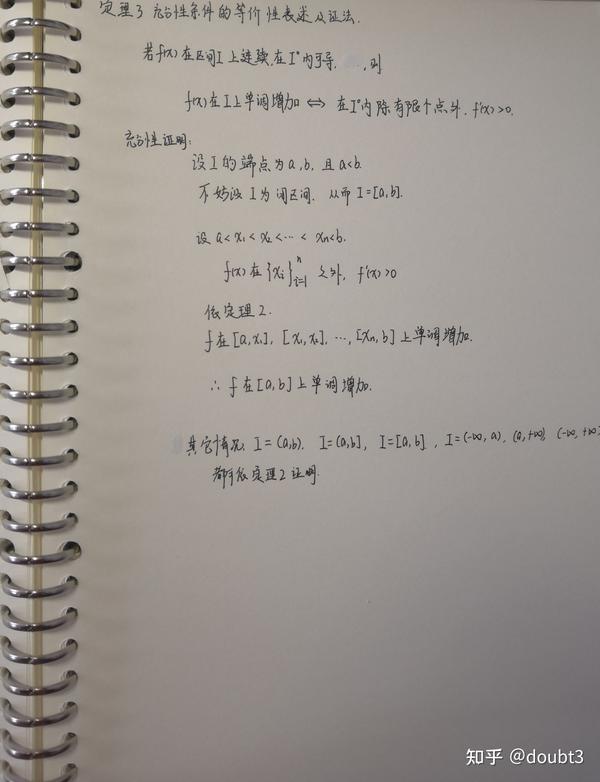 定理3 充分性条件的等价性表述及证法.
若f(x)在区间I上连续,在I°内可导, ,则
f(x)在I上单调增加 ⇔ 在I°内除有限个点外, f'(x)>0.
充分性证明:
设I的端点为a,b,且a<b.
不妨设I为闭区间,从而I=[a,b].
设a<x₁<x₂<⋯<xₙ<b.
f(x)在{xᵢ}ⁿᵢ₌₁之外, f'(x)>0
依定理2.
f在[a,x₁], [x₁,x₂], ⋯, [xₙ,b]上单调增加.
∴ f在[a,b]上单调增加.
其它情况: I=(a,b), I=(a,b], I=[a,b], I=(-∞,a), (a,+∞), (-∞,+∞)
都可依定理2证明.
知乎 @doubt3